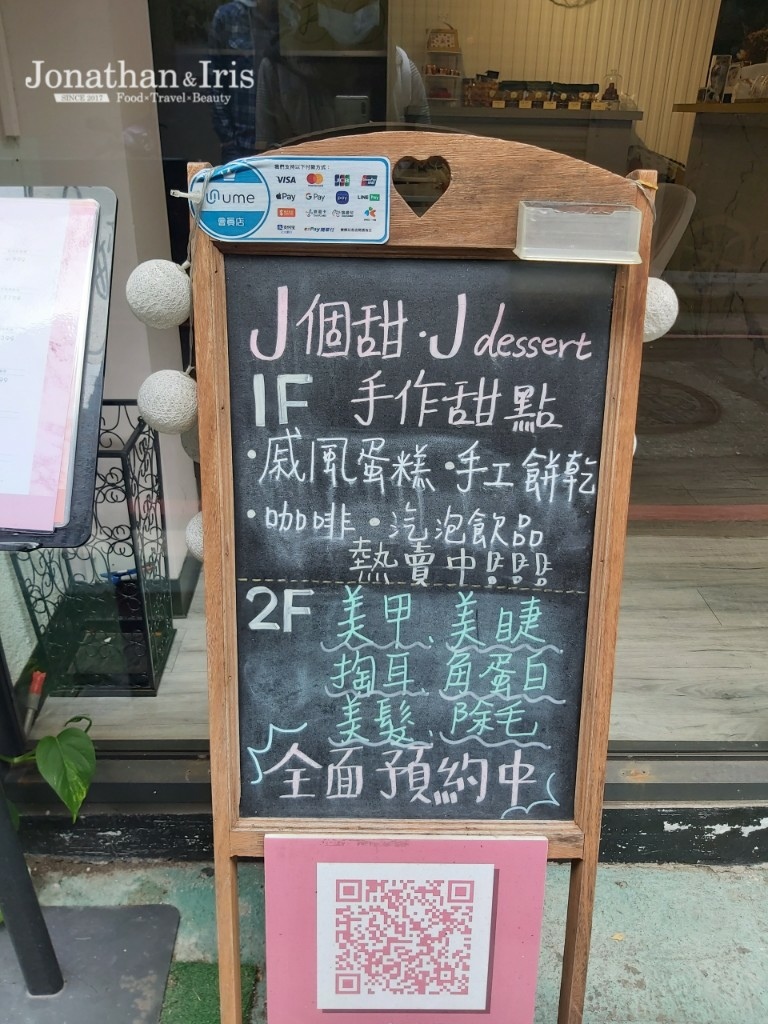 Jonathan & Iris
SINCE 2017 Food • Travel • Beauty
ume
會員店
VISA
Apple Pay G Pay LINE Pay
J個甜·J dessert
1F 手作甜點
·戚風蛋糕·手工餅乾
·咖啡·汽泡飲品
熱賣中!!!
2F 美甲、美睫
掏耳、角蛋白
美髮、除毛
全面預約中